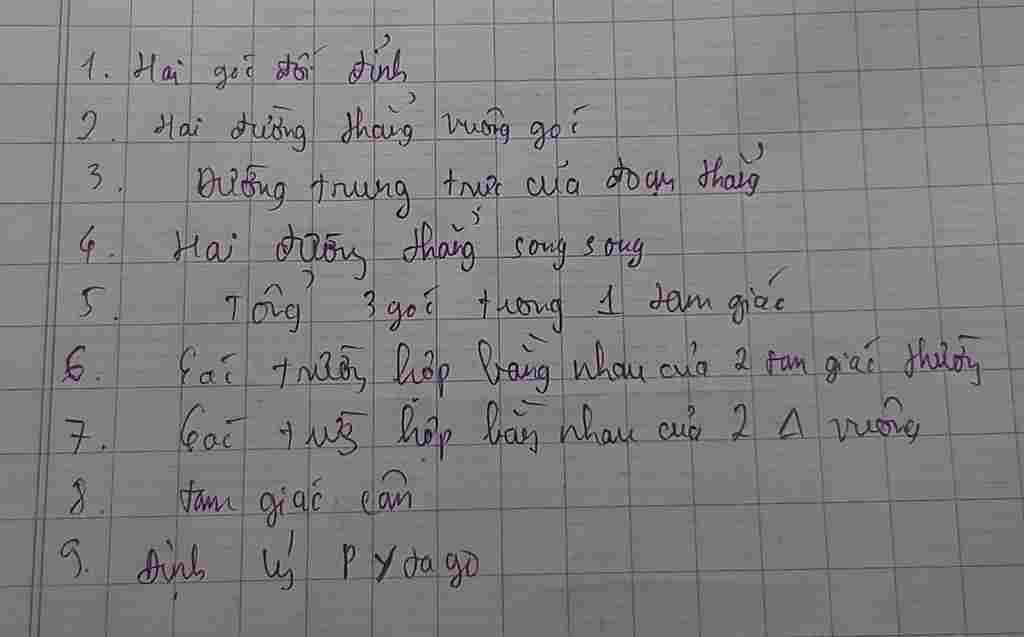 1. Hai góc đối đỉnh
2. Hai đường thẳng vuông góc
3. Đường trung trực của đoạn thẳng
4. Hai đường thẳng song song
5. Tổng 3 góc trong 1 tam giác
6. Các trường hợp bằng nhau của 2 tam giác thường
7. Các trường hợp bằng nhau của 2 Δ vuông
8. tam giác cân
9. định lý Pytago